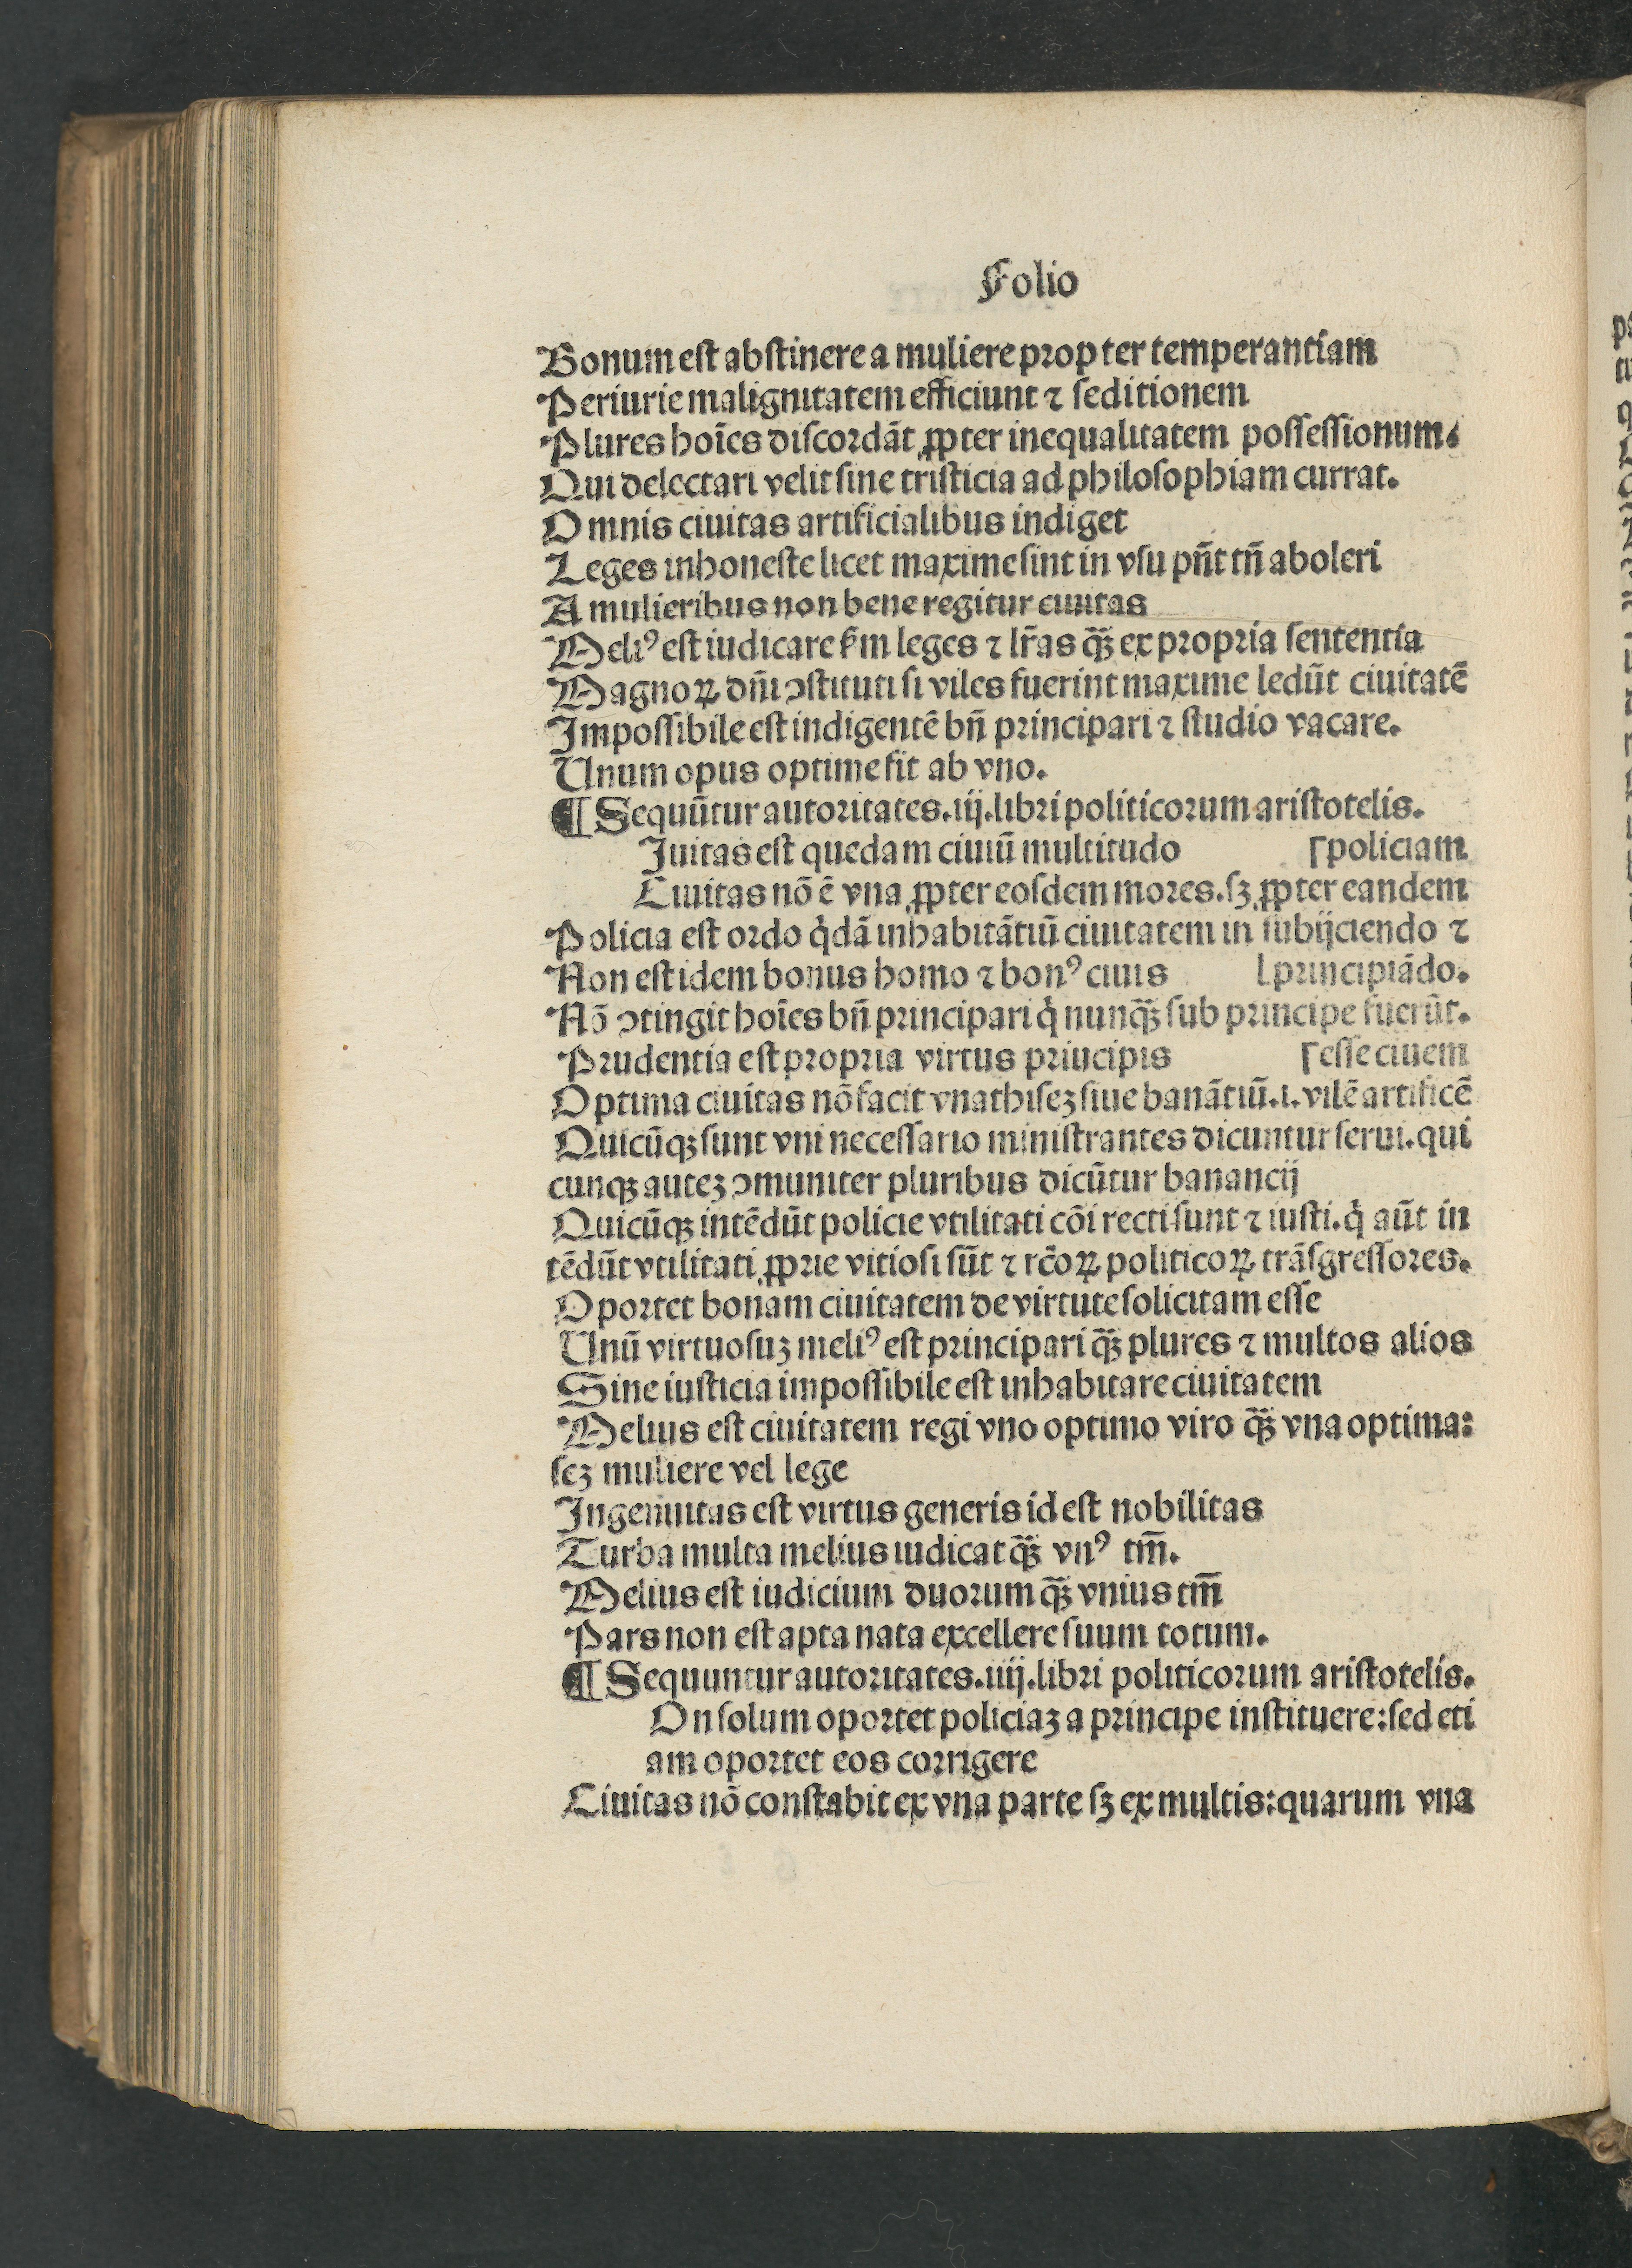 Folio
Bonum eſt abſtinere a muliere propter temperantiam
Periurie malignitatem efficiunt ⁊ ſeditionem
Plures hoīes diſcordāt ꝓpter inequalitatem poſſeſſionum.
Qui delectari velit ſine triſticia ad philoſophiam currat.
Omnis ciuitas artificialibus indiget
Leges inhoneſte licet maxime ſint in vſu pn̄t tn̄ aboleri
A mulieribus non bene regitur ciuitas
Meliꝰ eſt iudicare ẜm leges ⁊ lr̄as qƺ̄ ex propria ſententia
Magnoꝝ dn̄i ↄſtituti ſi viles fuerint maxime ledūt ciuitatē
Impoſſibile eſt indigentē bn̄ principari ⁊ ſtudio vacare.
Unum opus optime fit ab vno.
¶ Sequūtur autoritates .iij. libri politicorum ariſtotelis.
Iuitas eſt quedam ciuiū multitudo ⌈policiam
Ciuitas nō ē vna ꝓpter eoſdem mores. ſꝫ ꝓpter eandem
Policia eſt ordo q̇dā inhabitātiū ciuitatem in ſubijciendo ⁊
Non eſt idem bonus homo ⁊ bonꝰ ciuis ⌊principiādo.
Nō ↄtingit hoīes bn̄ principari q̇ nunqƺ̄ ſub principe fuerūt.
Prudentia eſt propria virtus priucipis ⌈eſſe ciuem
Optima ciuitas nō facit vnathiſeꝫ ſiue banātiū .i. vilē artificē
Quicūqꝫ ſunt vni neceſſario miniſtrantes dicuntur ſerui. qui
cunqꝫ auteꝫ ↄmuniter pluribus dicūtur banancij
Quicūqꝫ intēdūt policie vtilitati cōi recti ſunt ⁊ iuſti. q̇ aūt in
tēdūt vtilitati ꝓprie vitioſi ſūt ⁊ rc̄oꝝ politicoꝝ trāſgreſſores.
Oportet bonam ciuitatem de virtute ſolicitam eſſe
Unū virtuoſuꝫ meliꝰ eſt principari qƺ̄ plures ⁊ multos alios
Sine iuſticia impoſſibile eſt inhabitare ciuitatem
Melius eſt ciuitatem regi vno optimo viro qƺ̄ vna optima:
ſeꝫ muliere vel lege
Ingenuitas eſt virtus generis id eſt nobilitas
Turba multa melius iudicat qƺ̄ vnꝰ tm̄.
Melius eſt iudicium duorum qƺ̄ vnius tm̄
Pars non eſt apta nata excellere ſuum totum.
¶ Sequuntur autoritates .iiij. libri politicorum ariſtotelis.
On ſolum oportet policiaꝫ a principe inſtituere: ſed eti
am oportet eos corrigere
Ciuitas nō conſtabit ex vna parte ſꝫ ex multis: quarum vna